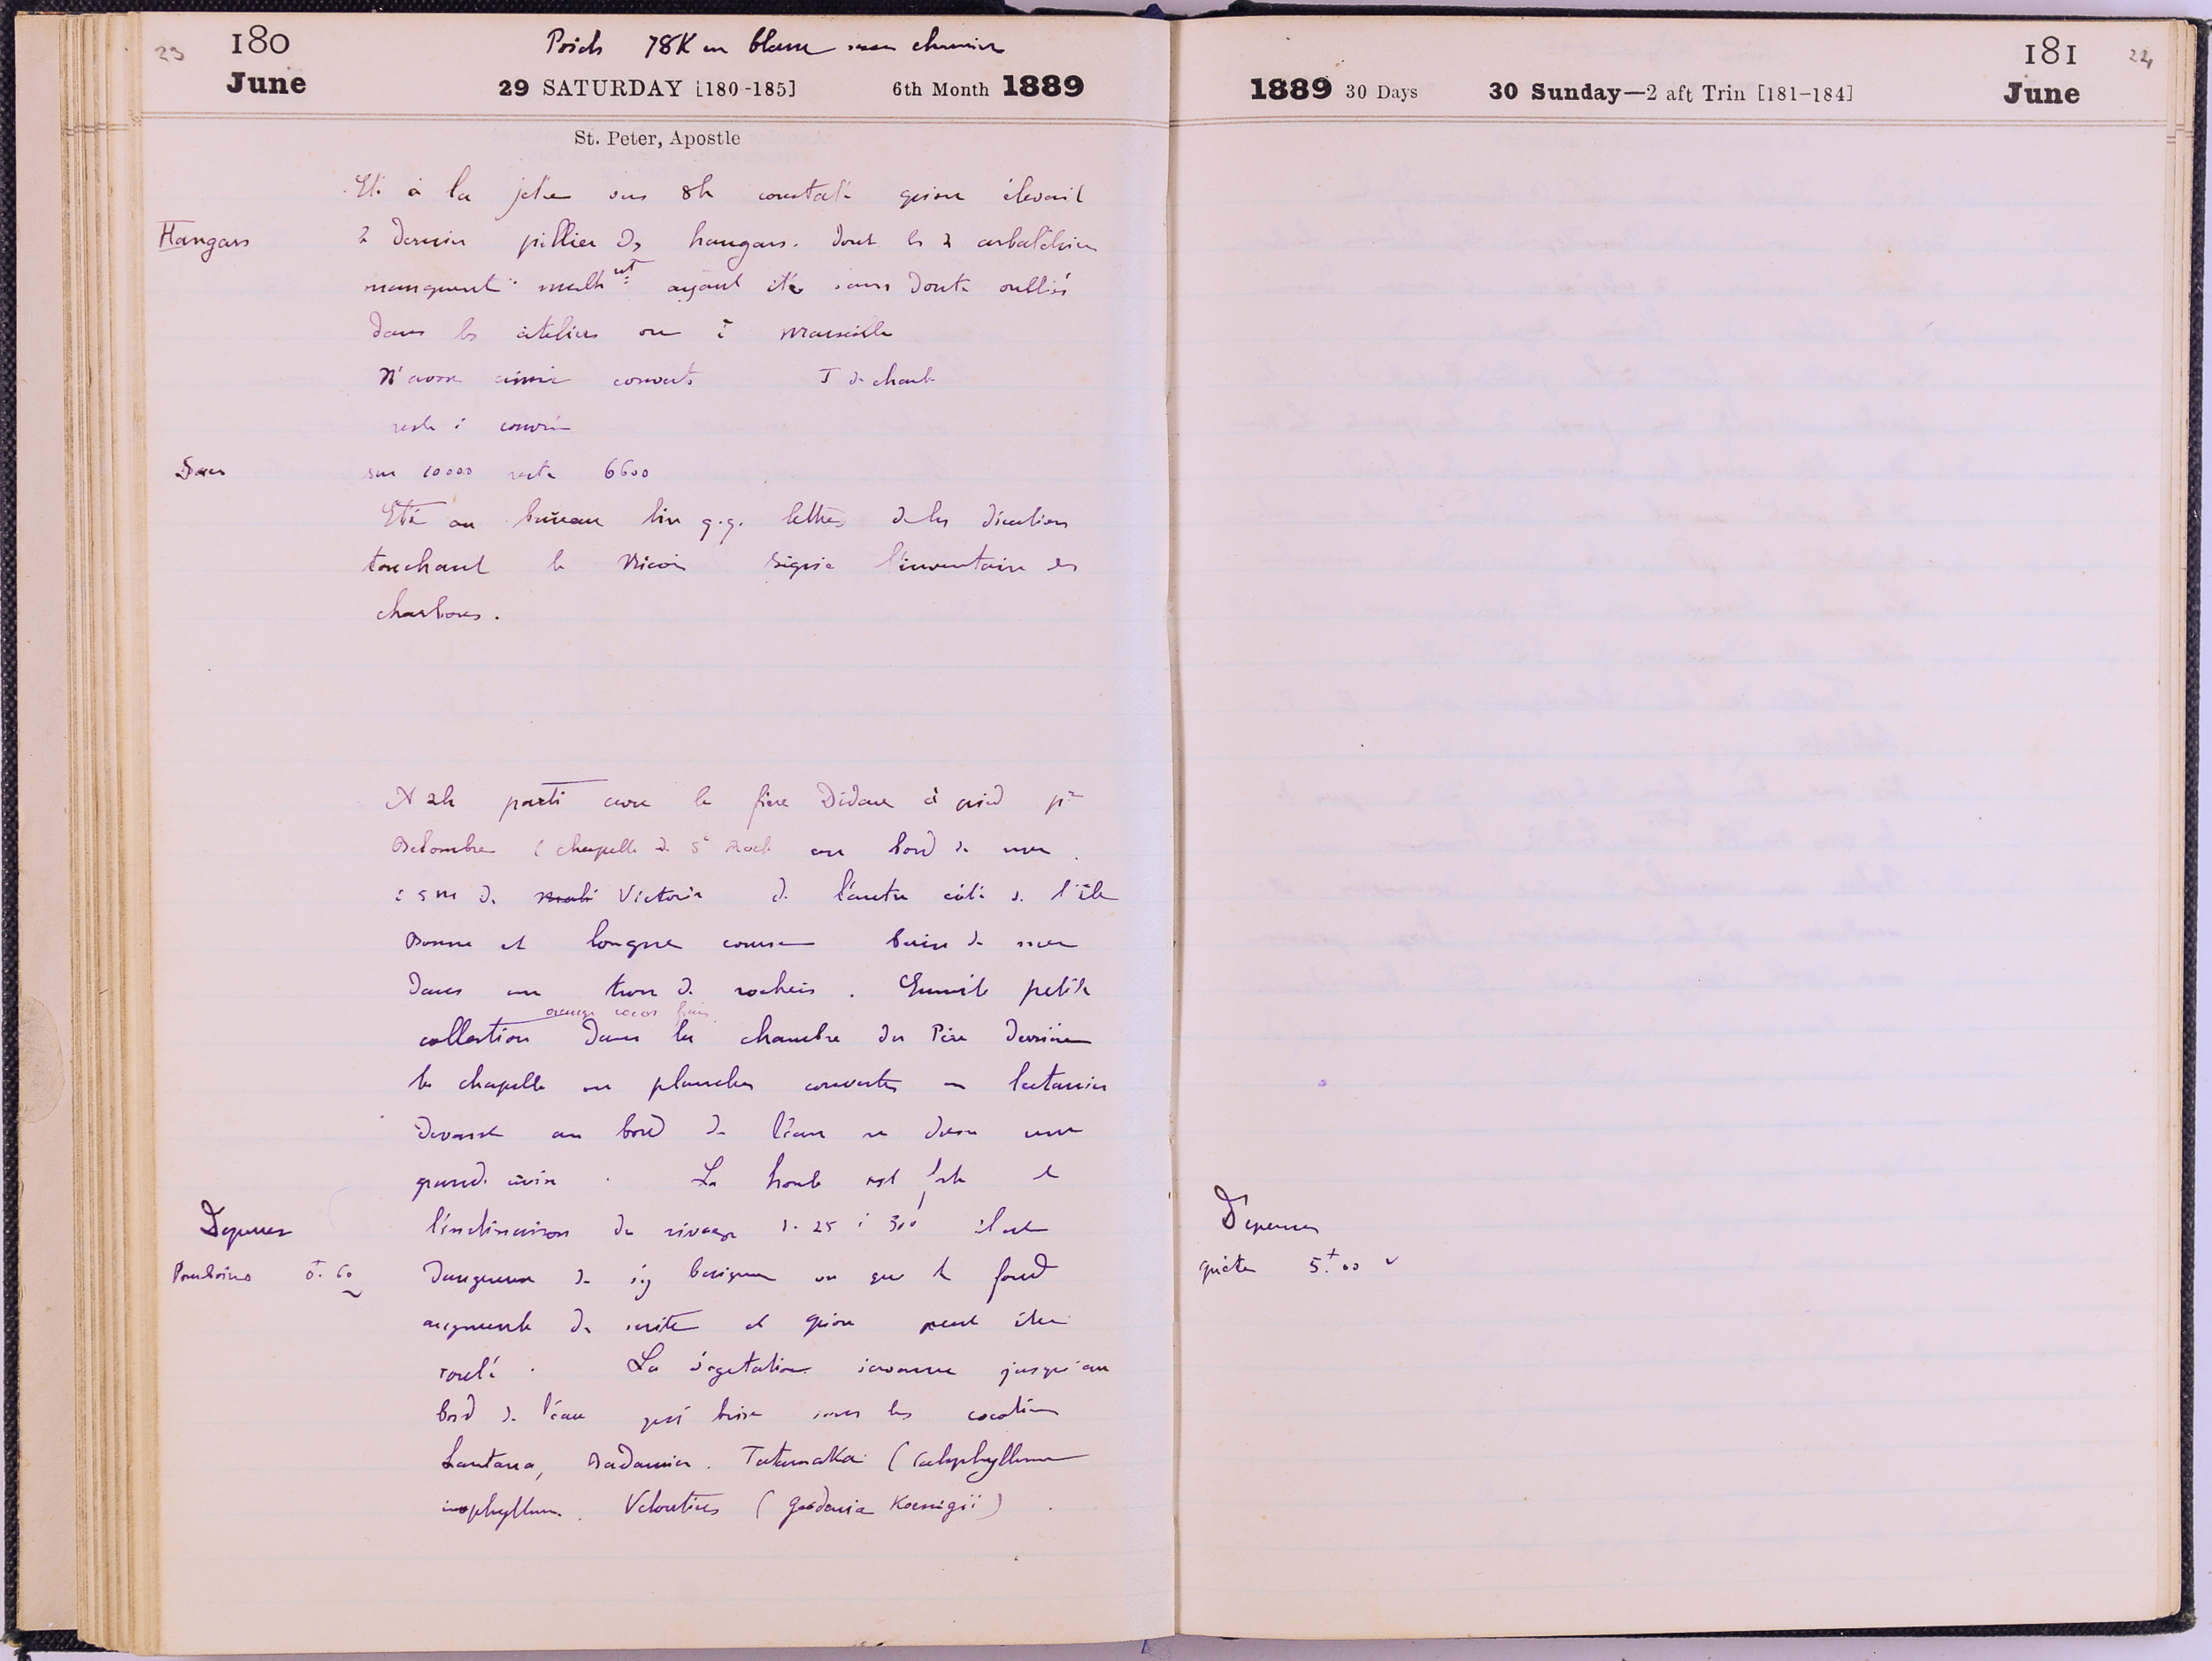 23 180
Poids 78K en blanc sans chemise
June 29 SATURDAY [180-185] 6th Month 1889
St. Peter, Apostle
Eté à la jetée vers 8h constaté qu'on élevait
Hangars 2 dernier pillier des hangars. dont les 2 arbalétriers
manquent malht ayant été sans doute oulliés
dans les ateliers ou à Marseille
N'avons ainsi couverts T de charb
reste à couvrir
sur 10000 reste 6600
Eté au bureau lire q.q. lettres de les direction
touchant le signé l'inventaire des
charbons.
A 2h parti avec le frère Didace à pied pr
Belombre (chapelle de St Roch au bord de mer.
à 5m de Victoria de l'autre côté de l'île
Bonne et longue course bain de mer
dans un trou de rochers. Ensuite petite
orange cocos
collation dans la chambre du Père derrière
la chapelle en planches couvertes en latanier
devant au bord de l'eau se dresse une
grande croix. La houle est forte et
Dépenses l'inclinaison du rivage de 25 à 30° il est
Pourboires 0+.60 dangereux de s'y baigner vu que le fond
augmente de suite et qu'on peut être
roulé. La végétation s'avance jusqu'au
bord de l'eau qui brise sous les cocotiers
Lantana, Badamier. Tatamaka (calophyllum
inophyllum. Veloutiers (Koenigii)
1889 30 Days 30 Sunday—2 aft Trin [181-184] 181 June 24
Dépenses
quête 5+.00